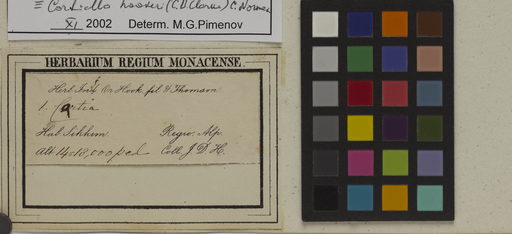 ≡ Cortiella hookeri (C.B. Clarke) C. Norman
XI 2002 Determ. M.G.Pimenov
HERBARIUM REGIUM MONACENSE.
Herb. Ind. Or. Hook. fil. & Thomson
1. Cortia
Hab. Sikkim Regio. Alp.
Alt. 14-18,000 ped. Coll. J. D. H.